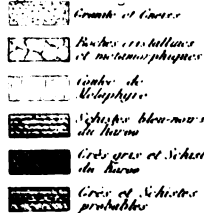 Granite et Gneiss
Roches cristallines
et métamorphiques
Coulée de
Mélaphyre
Schistes bleu-noirs
du karoo
Grès gris et Schistes
du karoo
Grès et Schistes
probables